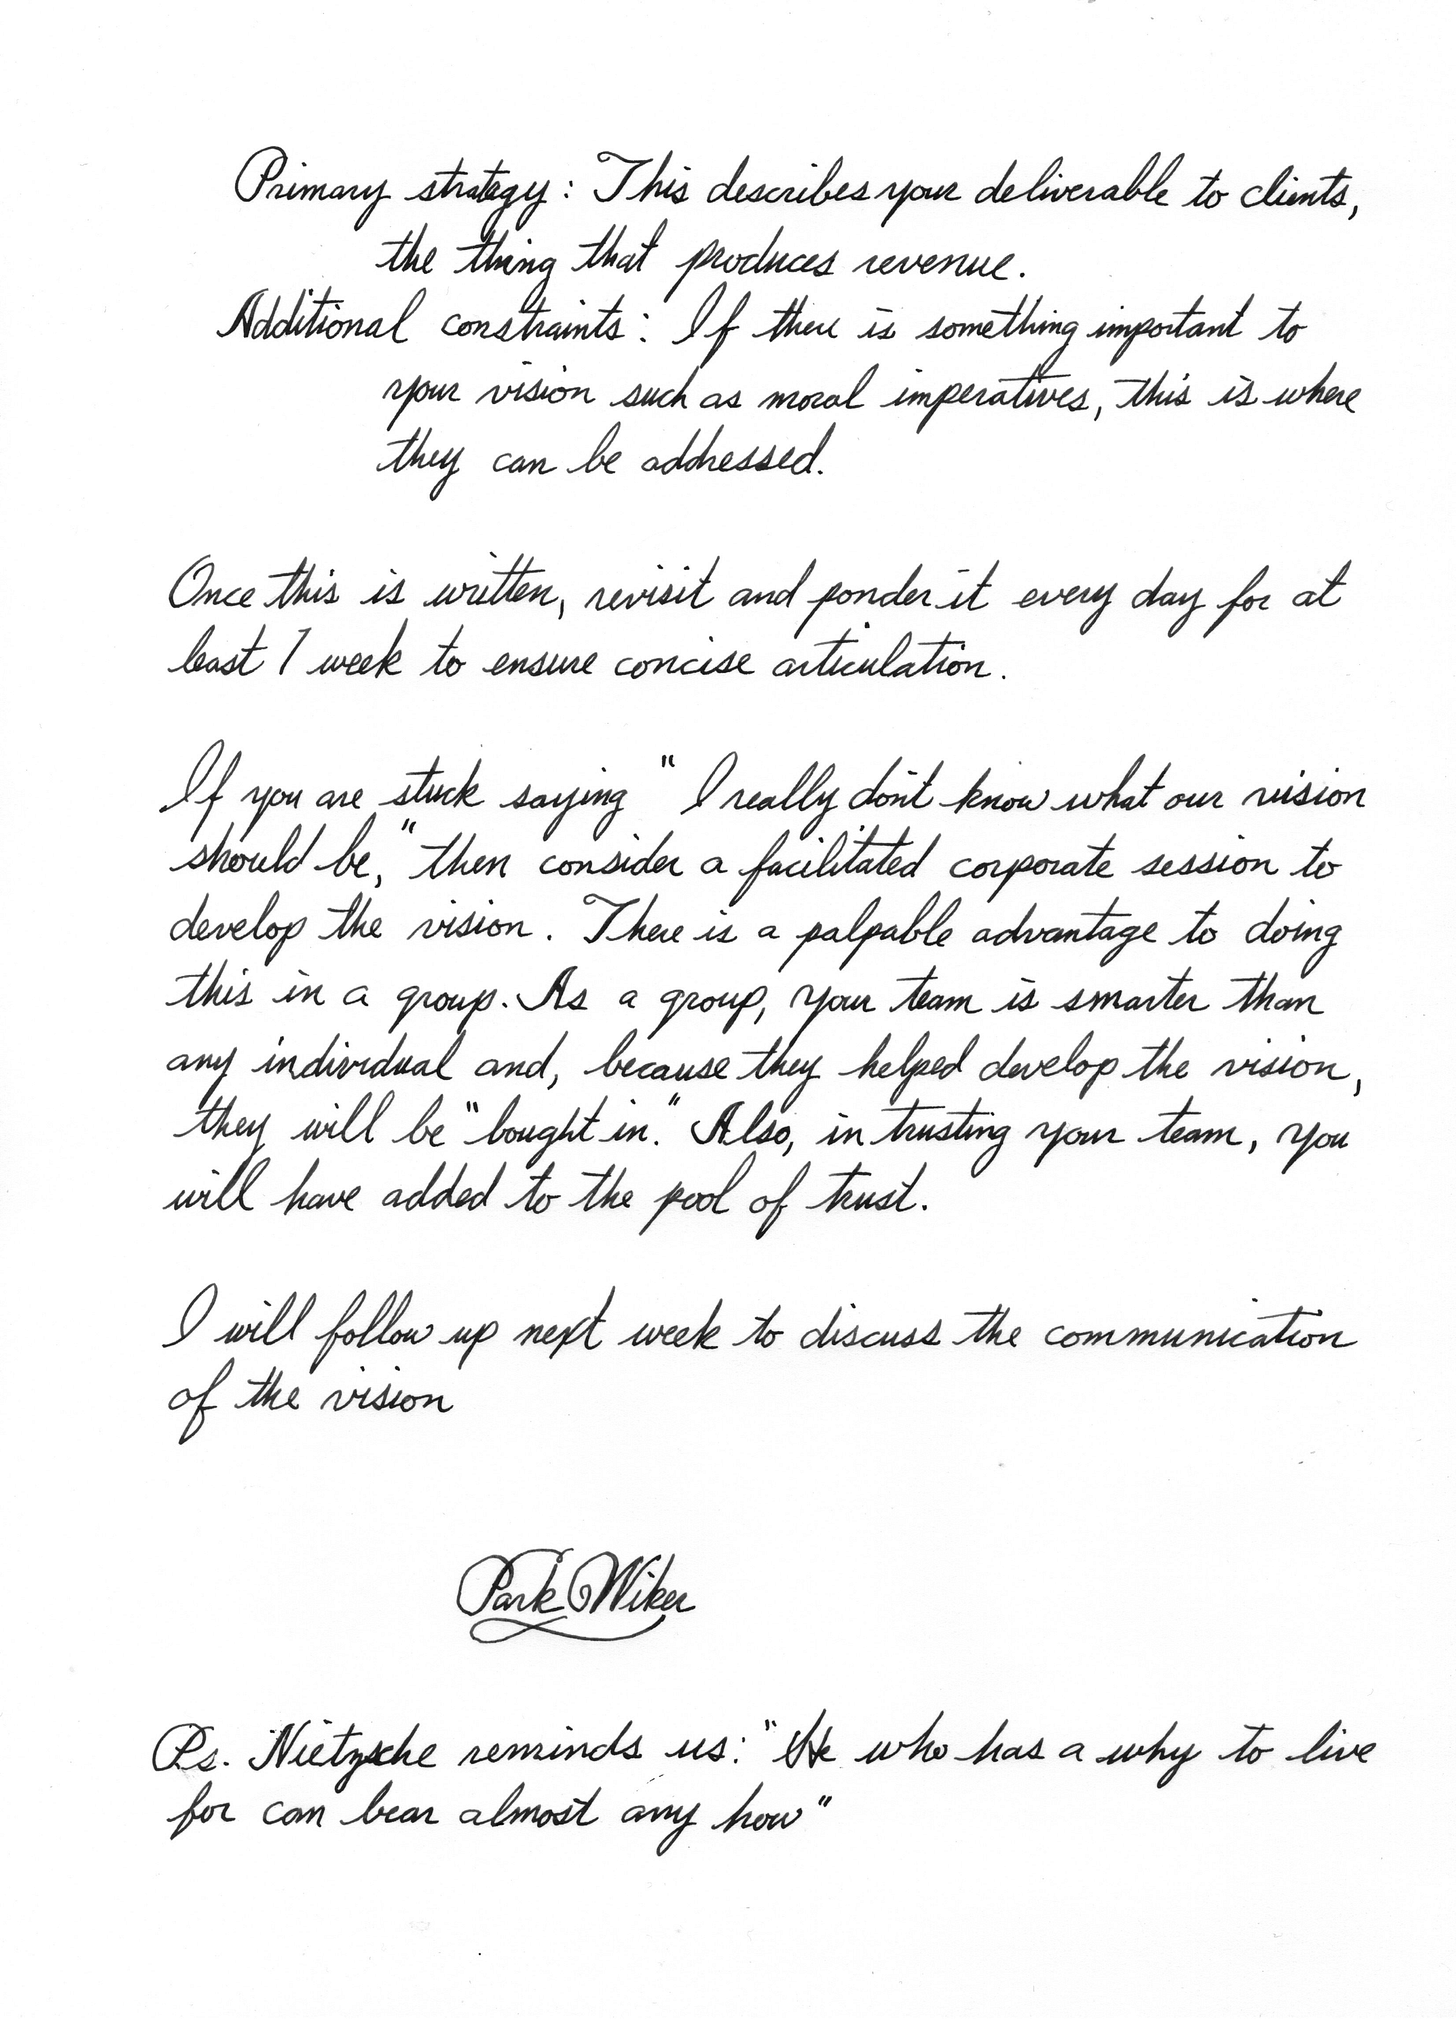 Primary strategy: This describes your deliverable to clients,
the thing that produces revenue.
Additional constraints: If there is something important to
your vision such as moral imperatives, this is where
they can be addressed.
Once this is written, revisit and ponder it every day for at
least 1 week to ensure concise articulation.
If you are stuck saying "I really don't know what our vision
should be," then consider a facilitated corporate session to
develop the vision. There is a palpable advantage to doing
this in a group. As a group, your team is smarter than
any individual and, because they helped develop the vision,
they will be "bought in." Also, in trusting your team, you
will have added to the pool of trust.
I will follow up next week to discuss the communication
of the vision
Park Wiker
Ps. Nietzsche reminds us: "He who has a why to live
for can bear almost any how"